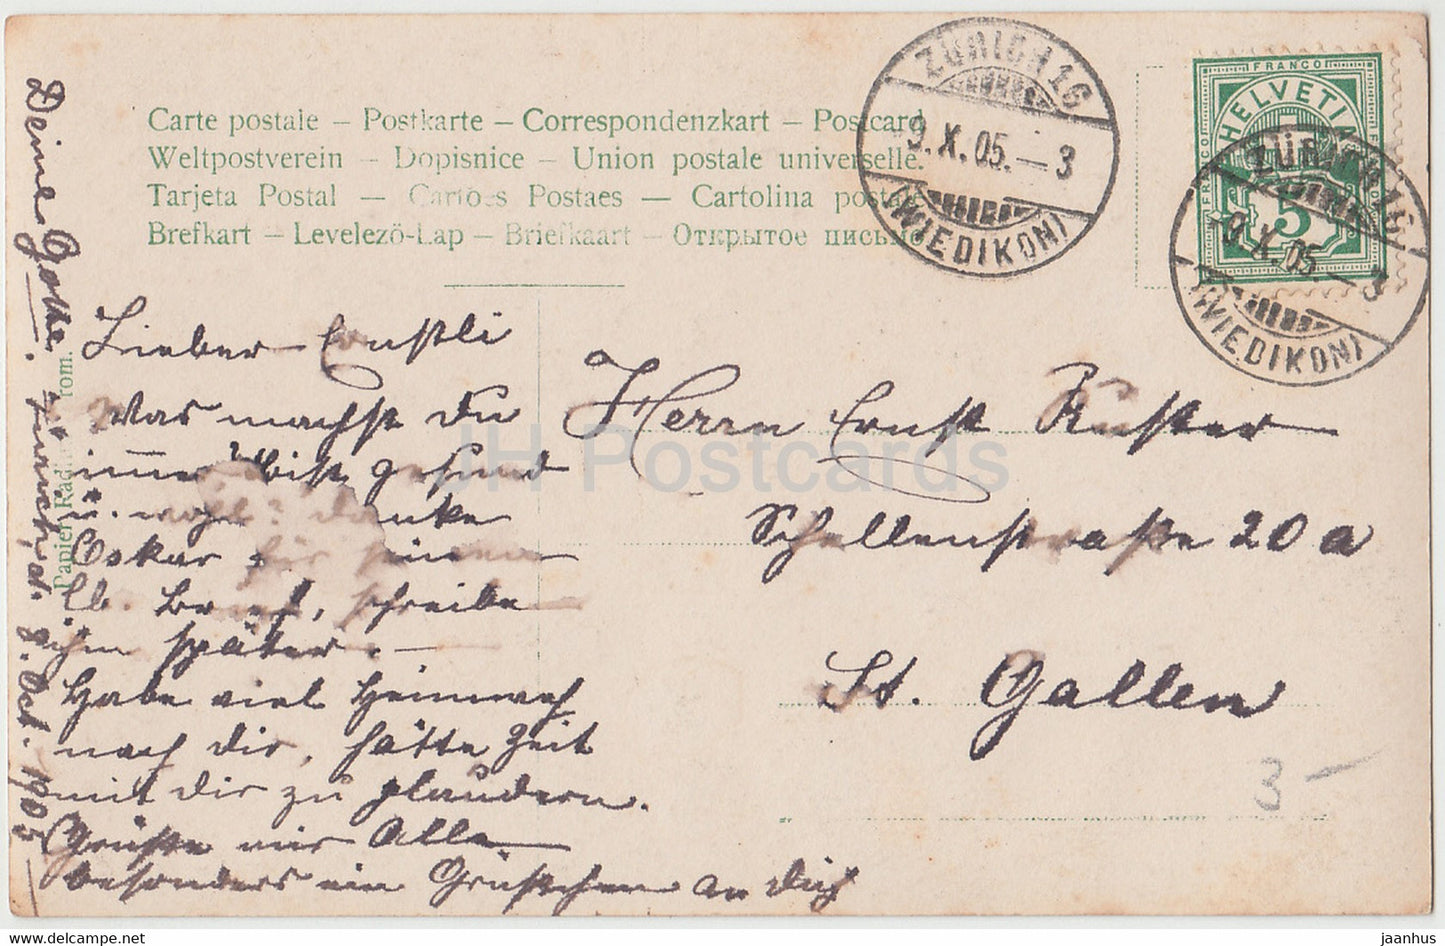 Carte postale – Postkarte – Correspondenzkart – Postcard
Weltpostverein – Dopisnice – Union postale universelle.
Tarjeta Postal – Cartões Postaes – Cartolina postale
Brefkart – Levelező-Lap – Briefkaart – Открытое письмо
ZÜRICH 16
9. X. 05. – 3
(WIEDIKON)
FRANCO
HELVETIA
FRANCO
5
ZÜRICH 16
9. X. 05. – 3
(WIEDIKON)
Lieber Ernstli
Was machst Du
immer? Bist gesund
u. wohl? danke
Oskar für seinen
lb. Brief, schreibe
ihm später. –
Habe viel Heimweh
nach Dir, hätte Zeit
mit Dir zu plaudern.
Grüsse mir Alle
besonders ein Grüsschen an Dich
Deine Gotte. Zürich, d. 8. Oct. 1905
Papier Rad rom.
Herrn Ernst Kuster
Schellenstrasse 20 a
St. Gallen
3 –
JH Postcards
www.delcampe.net
jaanhus